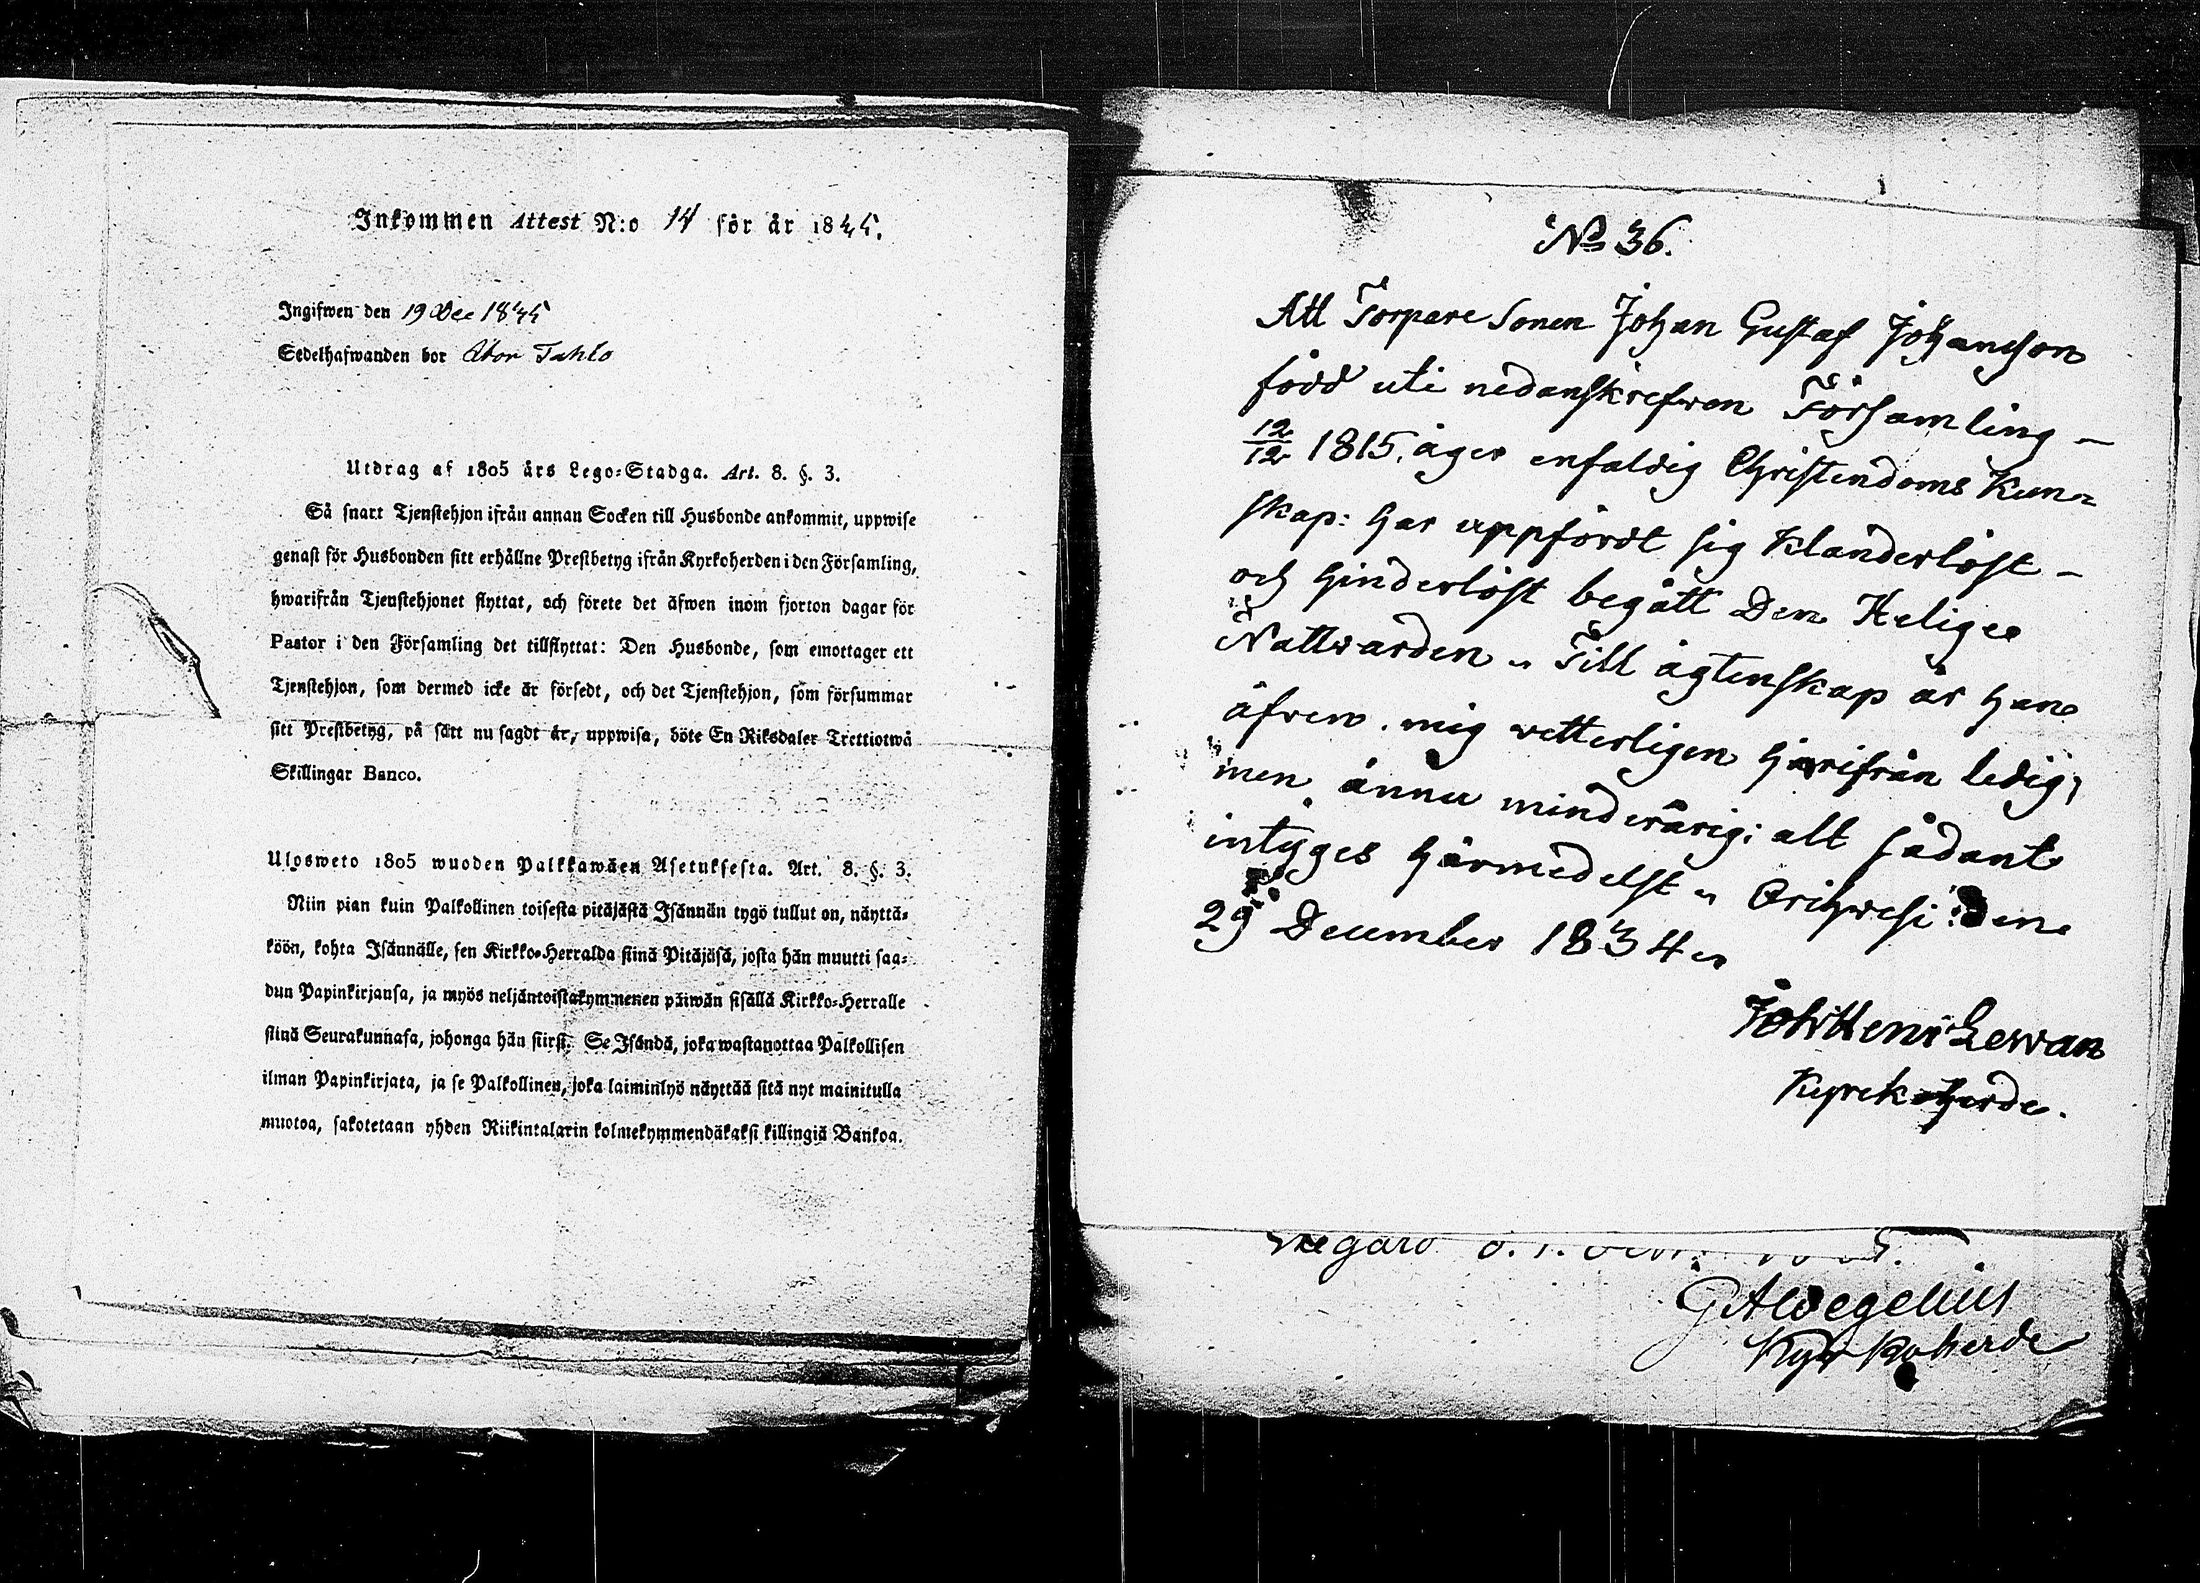 Inkommen Attest N:o 14 för år 1835.
Ingifwen den 19 Dec 1835
Sedelhafwanden bor Åbor Tahlo
Utdrag af 1805 års Lego-Stadga. Art. 8. §. 3.
Så snart Tjenstehjon ifrån annan Socken till Husbonde ankommit, uppwise
genast för Husbonden sitt erhållne Prestbetyg ifrån Kyrkoherden i den Församling,
hwarifrån Tjenstehjonet flyttat, och förete det äfwen inom fjorton dagar för
Pastor i den Församling det tillflyttat: Den Husbonde, som emottager ett
Tjenstehjon, som dermed icke är försedt, och det Tjenstehjon, som försummar
sitt Prestbetyg, på sätt nu sagdt är, uppwisa, böte En Riksdaler Trettiotwå
Skillingar Banco.
Ulosweto 1805 wuoden Palkkawäen Asetuksesta. Art. 8. §. 3.
Niin pian kuin Palkollinen toisesta pitäjästä Isännän tygö tullut on, näyttä-
köön, kohta Isännälle, sen Kirkko-Herralda siinä Pitäjäsä, josta hän muutti saa-
dun Papinkirjansa, ja myös neljäntoistakymmenen päiwän sisällä Kirkko-Herralle
siinä Seurakunnasa, johonga hän siirsi. Se Isändä, joka wastanottaa Palkollisen
ilman Papinkirjata, ja se Palkollinen, joka laiminlyö näyttää sitä nyt mainitulla
muotoa, sakotetaan yhden Riikintalarin kolmekymmendäkaksi killingiä Bankoa.
No 36.
Att Torpare Sonen Johan Gustaf Johansson
född uti nedanskrefwen Församling –
12/12 1815, äger enfaldig Christendoms Kun=
skap: har uppfördt sig Klanderlöst –
och hinderlöst begått Den Heliga
Nattwarden „ Till ägtenskap är han
äfwen, mig vetterligen härifrån ledig,
men ännu minderårig; alt sådant
intyges härmedelst „ Orihwesi den
29 December 1834 „
Joh Henr Lewan
Kyrckoherde.
G A Wegelius
Kyrkoherde